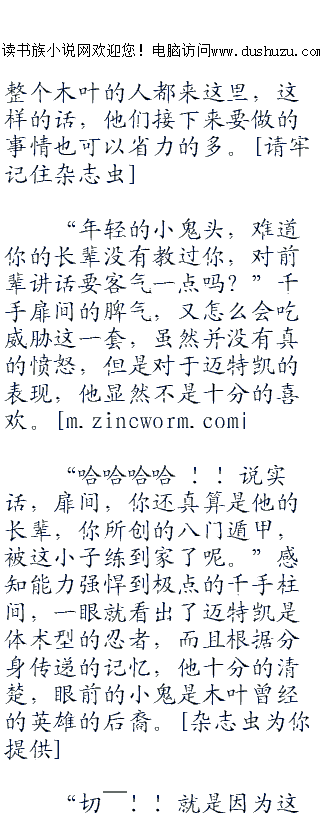 读书族小说网欢迎您！电脑访问www.dushuzu.com
整个木叶的人都来这里，这
样的话，他们接下来要做的
事情也可以省力的多。[请牢
记住杂志虫]
“年轻的小鬼头，难道
你的长辈没有教过你，对前
辈讲话要客气一点吗？”千
手扉间的脾气，又怎么会吃
威胁这一套，虽然并没有真
的愤怒，但是对于迈特凯的
表现，他显然不是十分的喜
欢。[m.zincworm.com]
“哈哈哈哈 ！！说实
话，扉间，你还真算是他的
长辈，你所创的八门遁甲，
被这小子练到家了呢。”感
知能力强悍到极点的千手柱
间，一眼就看出了迈特凯是
体术型的忍者，而且根据分
身传递的记忆，他十分的清
楚，眼前的小鬼是木叶曾经
的英雄的后裔。[杂志虫为你
提供]
“切——！！就是因为这